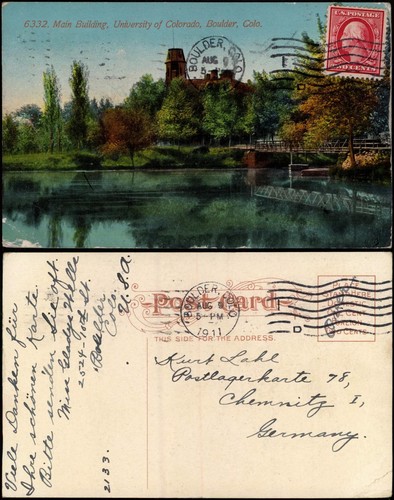 6332. Main Building, University of Colorado, Boulder, Colo.
BOULDER, COLO.
AUG 9
5-PM
U.S. POSTAGE
2 CENTS 2
Post Card
THIS SIDE FOR THE ADDRESS.
BOULDER, COLO.
AUG 9
5-PM
1911
D
Kurt Lahl
Postlagerkarte 78,
Chemnitz I,
Germany.
Viele Danken für
Ihre schönen Karte.
Bitte senden Sie oft.
Miss Gladys
St.
Boulder,
Colo.
U.S.A.
2133.